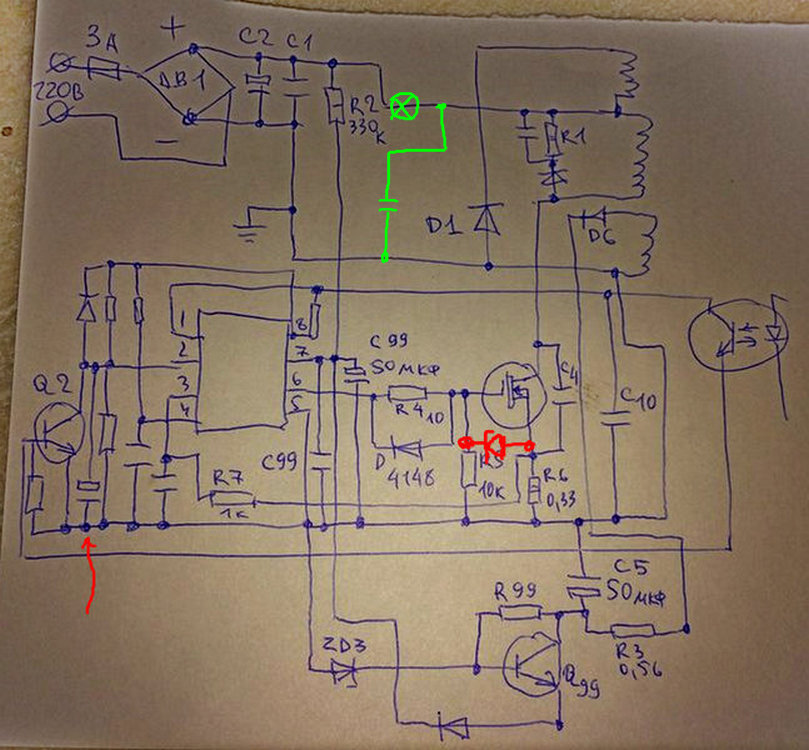 3А
+
C2
C1
220В
DB1
−
R2
330к
R1
D1
D6
1
2
3
4
8
7
6
5
C99
50мкф
Q2
R4 10
C4
C10
D
4148
R5
10к
R6
0,33
C99
R7
1к
C5
50мкф
R99
R3
0,56
ZD3
Q99